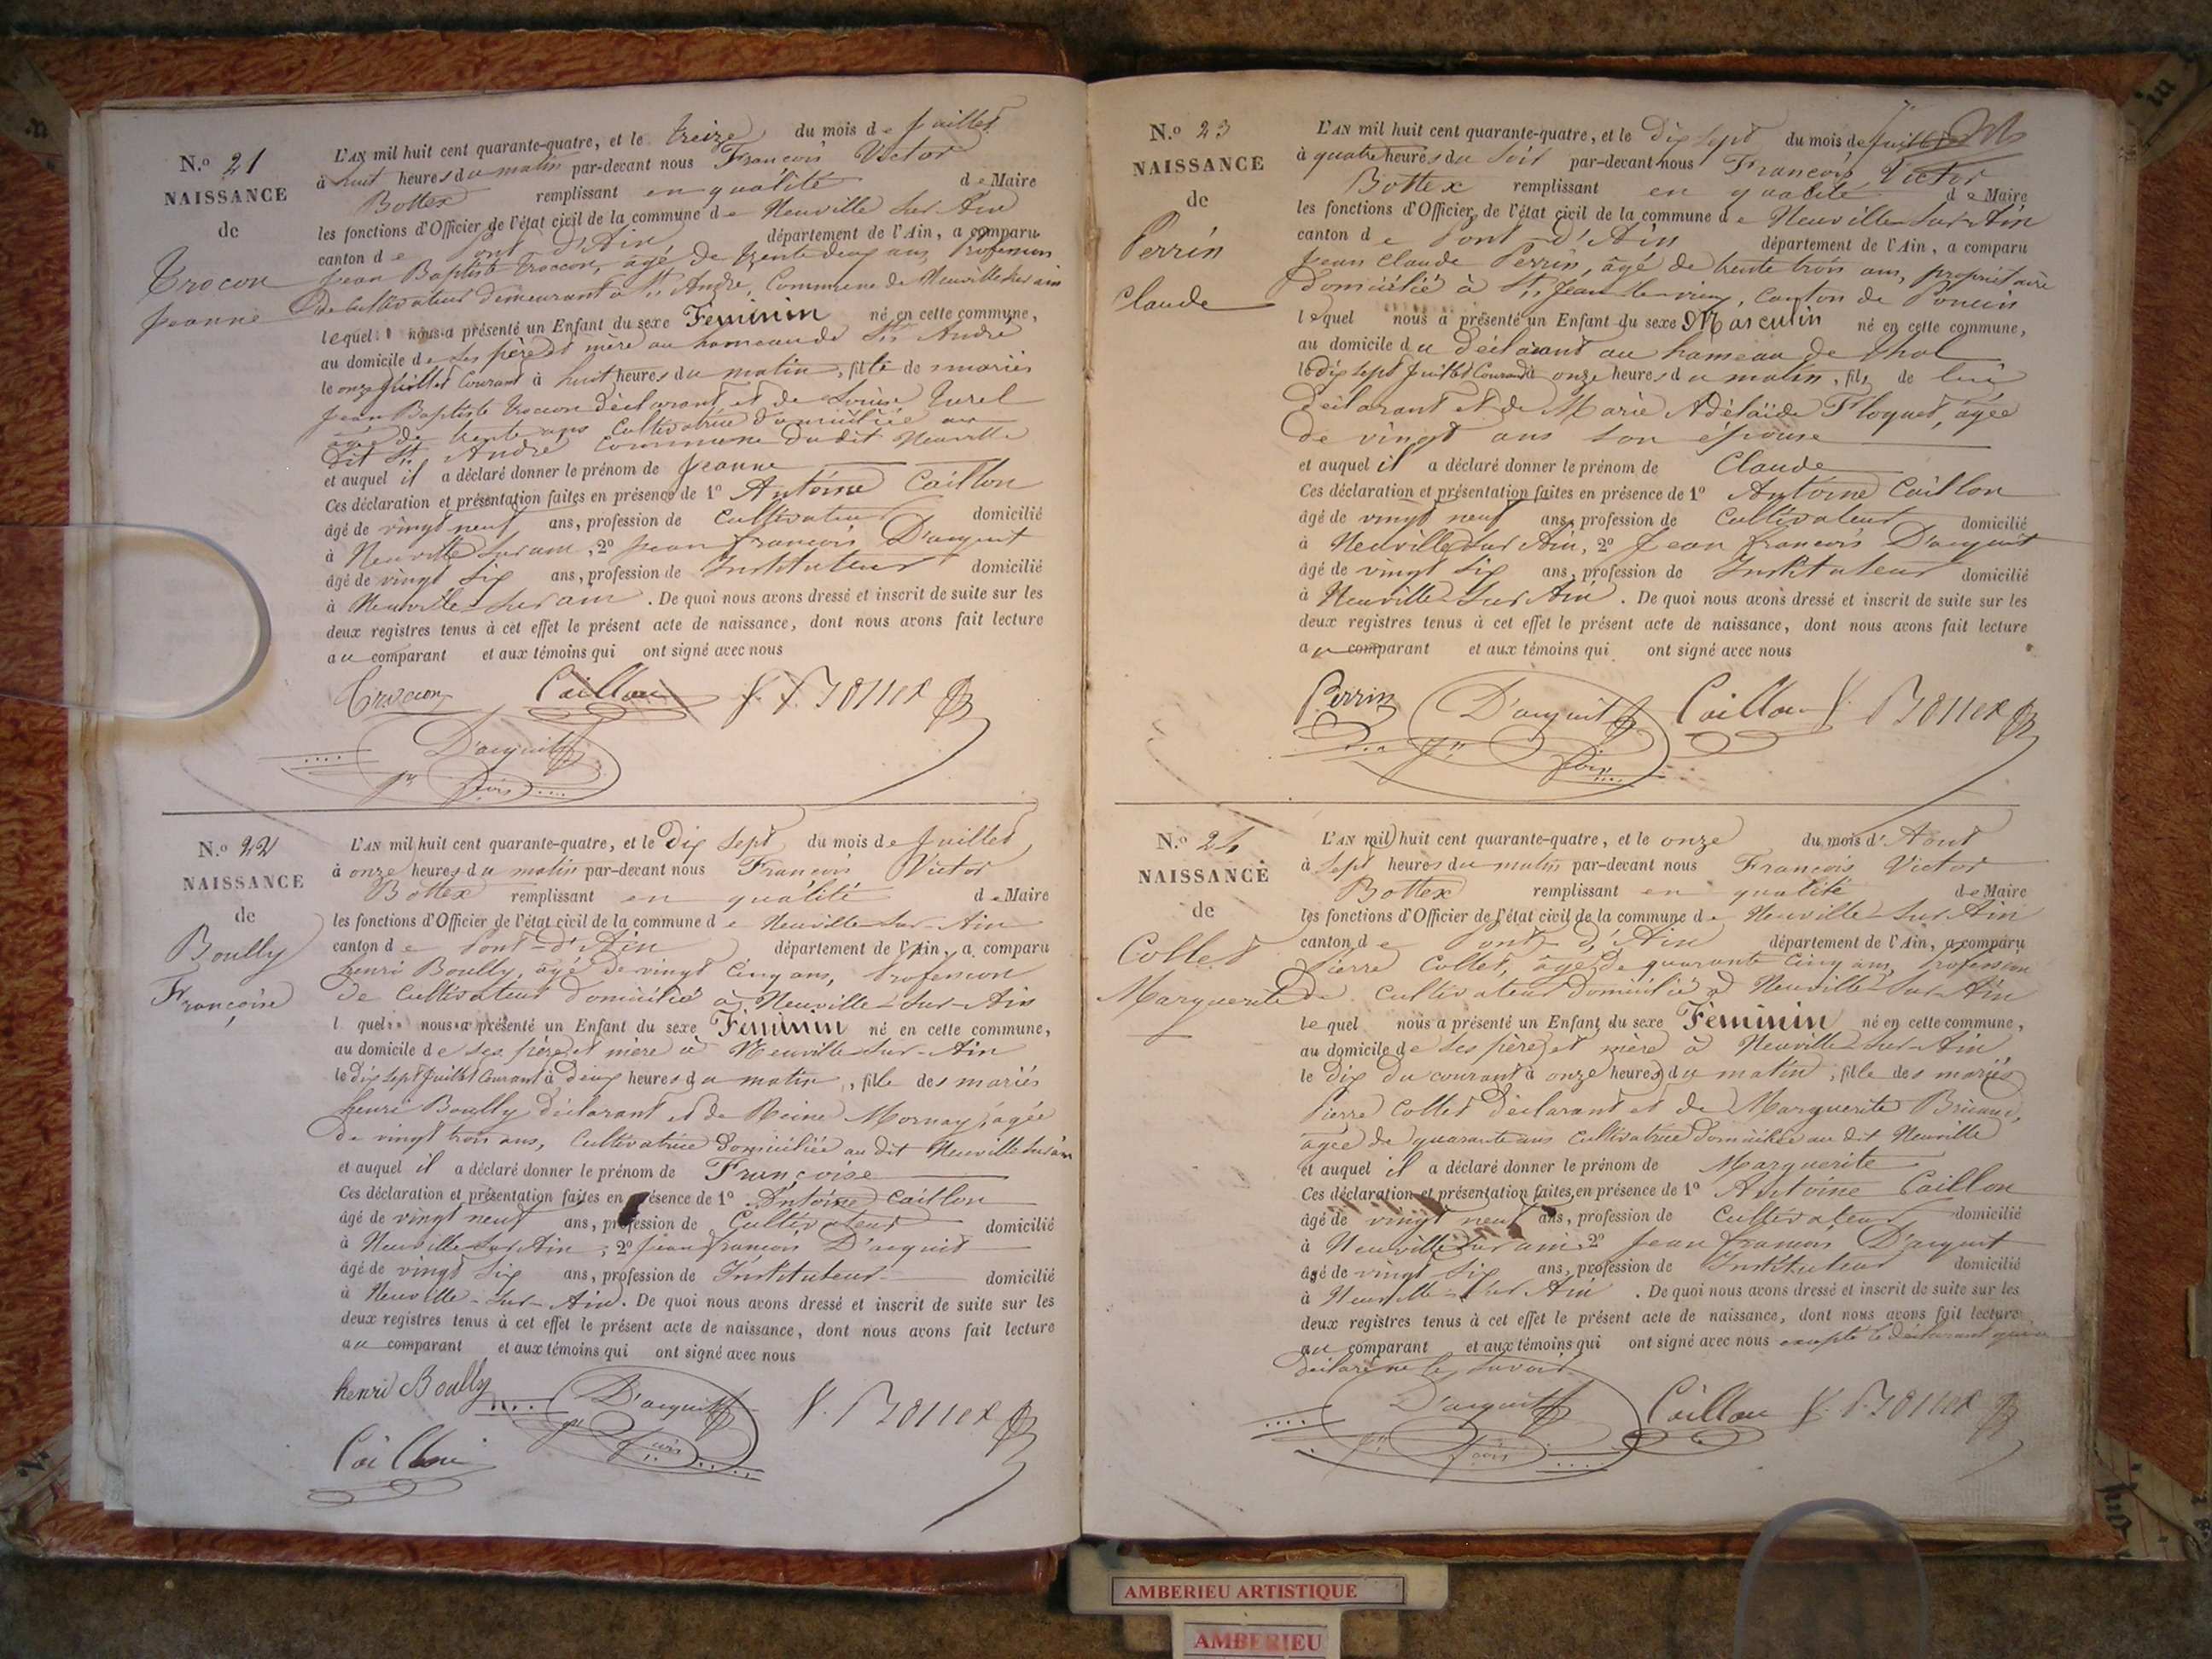 N.º 21
NAISSANCE
de
Trocon
Jeanne
L'AN mil huit cent quarante-quatre, et le treize du mois de Juillet
à huit heures du matin par-devant nous François Victor
Bottex remplissant en qualité de Maire
les fonctions d'Officier de l'état civil de la commune de Neuville sur Ain
canton de Pont d'Ain département de l'Ain, a comparu
Jean Baptiste Troccon, âgé de trente deux ans, Profession
de Cultivateur demeurant à St André, Commune de Neuville sur ain
lequel nous a présenté un Enfant du sexe Feminin né en cette commune,
au domicile de ses père et mère au hameau de St André
le onze Juillet Courant à huit heures du matin, fille de mariés
Jean Baptiste Troccon déclarant et de Louise Jurel
âgée de trente ans Cultivatrice domiciliée au
dit St André Commune du dit Neuville
et auquel il a déclaré donner le prénom de Jeanne
Ces déclaration et présentation faites en présence de 1º Antoine Caillon
âgé de vingt neuf ans, profession de Cultivateur domicilié
à Neuville sur ain, 2º Jean François D'arguit
âgé de vingt six ans, profession de Instituteur domicilié
à Neuville sur ain. De quoi nous avons dressé et inscrit de suite sur les
deux registres tenus à cet effet le présent acte de naissance, dont nous avons fait lecture
au comparant et aux témoins qui ont signé avec nous
Troccon Caillon f. V. Bottex
D'arguit
Jn fois
N.º 22
NAISSANCE
de
Boully
Françoise
L'AN mil huit cent quarante-quatre, et le Dix Sept du mois de Juillet,
à onze heures du matin par-devant nous François Victor
Bottex remplissant en qualité de Maire
les fonctions d'Officier de l'état civil de la commune de Neuville-sur-Ain
canton de Pont-d'Ain département de l'Ain, a comparu
henri Boully, âgé de vingt Cinq ans, Profession
de Cultivateur domicilié à Neuville-sur-Ain
lequel nous a présenté un Enfant du sexe Féminin né en cette commune,
au domicile de ses père et mère à Neuville-sur-Ain
le dix sept Juillet Courant à deux heures du matin, fille des mariés
henri Boully déclarant et de Reine Mornay, âgée
de vingt trois ans, Cultivatrice domiciliée au dit Neuville sur ain
et auquel il a déclaré donner le prénom de Françoise
Ces déclaration et présentation faites en présence de 1º Antoine Caillon
âgé de vingt neuf ans, profession de Cultivateur domicilié
à Neuville sur Ain, 2º Jean françois D'arguit
âgé de vingt six ans, profession de Instituteur domicilié
à Neuville-sur-Ain. De quoi nous avons dressé et inscrit de suite sur les
deux registres tenus à cet effet le présent acte de naissance, dont nous avons fait lecture
au comparant et aux témoins qui ont signé avec nous
henri Boully D'arguit f. V. Bottex
Jn fois
Caillon
N.º 23
NAISSANCE
de
Perrin
Claude
L'AN mil huit cent quarante-quatre, et le Dix Sept du mois de Juillet
à quatre heures du soir par-devant nous François Victor
Bottex remplissant en qualité de Maire
les fonctions d'Officier de l'état civil de la commune de Neuville-sur-Ain
canton de Pont-d'Ain département de l'Ain, a comparu
Jean Claude Perrin, âgé de trente trois ans, propriétaire
domicilié à St Jean-le-vieux, Canton de Poncin
lequel nous a présenté un Enfant du sexe Masculin né en cette commune,
au domicile du déclarant au hameau de Thol
le dix sept Juillet Courant à onze heures du matin, fils de lui
déclarant et de Marie Adélaïde Floquet, âgée
de vingt ans son épouse
et auquel il a déclaré donner le prénom de Claude
Ces déclaration et présentation faites en présence de 1º Antoine Caillon
âgé de vingt neuf ans, profession de Cultivateur domicilié
à Neuville sur Ain, 2º Jean françois D'arguit
âgé de vingt six ans, profession de Instituteur domicilié
à Neuville-sur Ain. De quoi nous avons dressé et inscrit de suite sur les
deux registres tenus à cet effet le présent acte de naissance, dont nous avons fait lecture
au comparant et aux témoins qui ont signé avec nous
Perrin D'arguit Caillon f. V. Bottex
Jn fois
N.º 24
NAISSANCE
de
Collet
Marguerite
L'AN mil huit cent quarante-quatre, et le onze du mois d'Aout
à sept heures du matin par-devant nous François Victor
Bottex remplissant en qualité de Maire
les fonctions d'Officier de l'état civil de la commune de Neuville-sur Ain
canton de Pont-d'Ain département de l'Ain, a comparu
Pierre Collet, âgé de quarante Cinq ans, Profession
de Cultivateur domicilié à Neuville-sur-Ain
lequel nous a présenté un Enfant du sexe Feminin né en cette commune,
au domicile de ses père et mère à Neuville-sur-Ain
le dix du courant à onze heures du matin, fille des mariés
Pierre Collet déclarant et de Marguerite
âgée de quarante ans Cultivatrice domiciliée au dit Neuville
et auquel il a déclaré donner le prénom de Marguerite
Ces déclaration et présentation faites en présence de 1º Antoine Caillon
âgé de vingt neuf ans, profession de Cultivateur domicilié
à Neuville sur ain 2º Jean françois D'arguit
âgé de vingt six ans, profession de Instituteur domicilié
à Neuville-sur Ain. De quoi nous avons dressé et inscrit de suite sur les
deux registres tenus à cet effet le présent acte de naissance, dont nous avons fait lecture
au comparant et aux témoins qui ont signé avec nous excepté le déclarant qui a
déclaré ne le savoir
D'arguit Caillon f. V. Bottex
Jn fois
AMBERIEU ARTISTIQUE
AMBERIEU